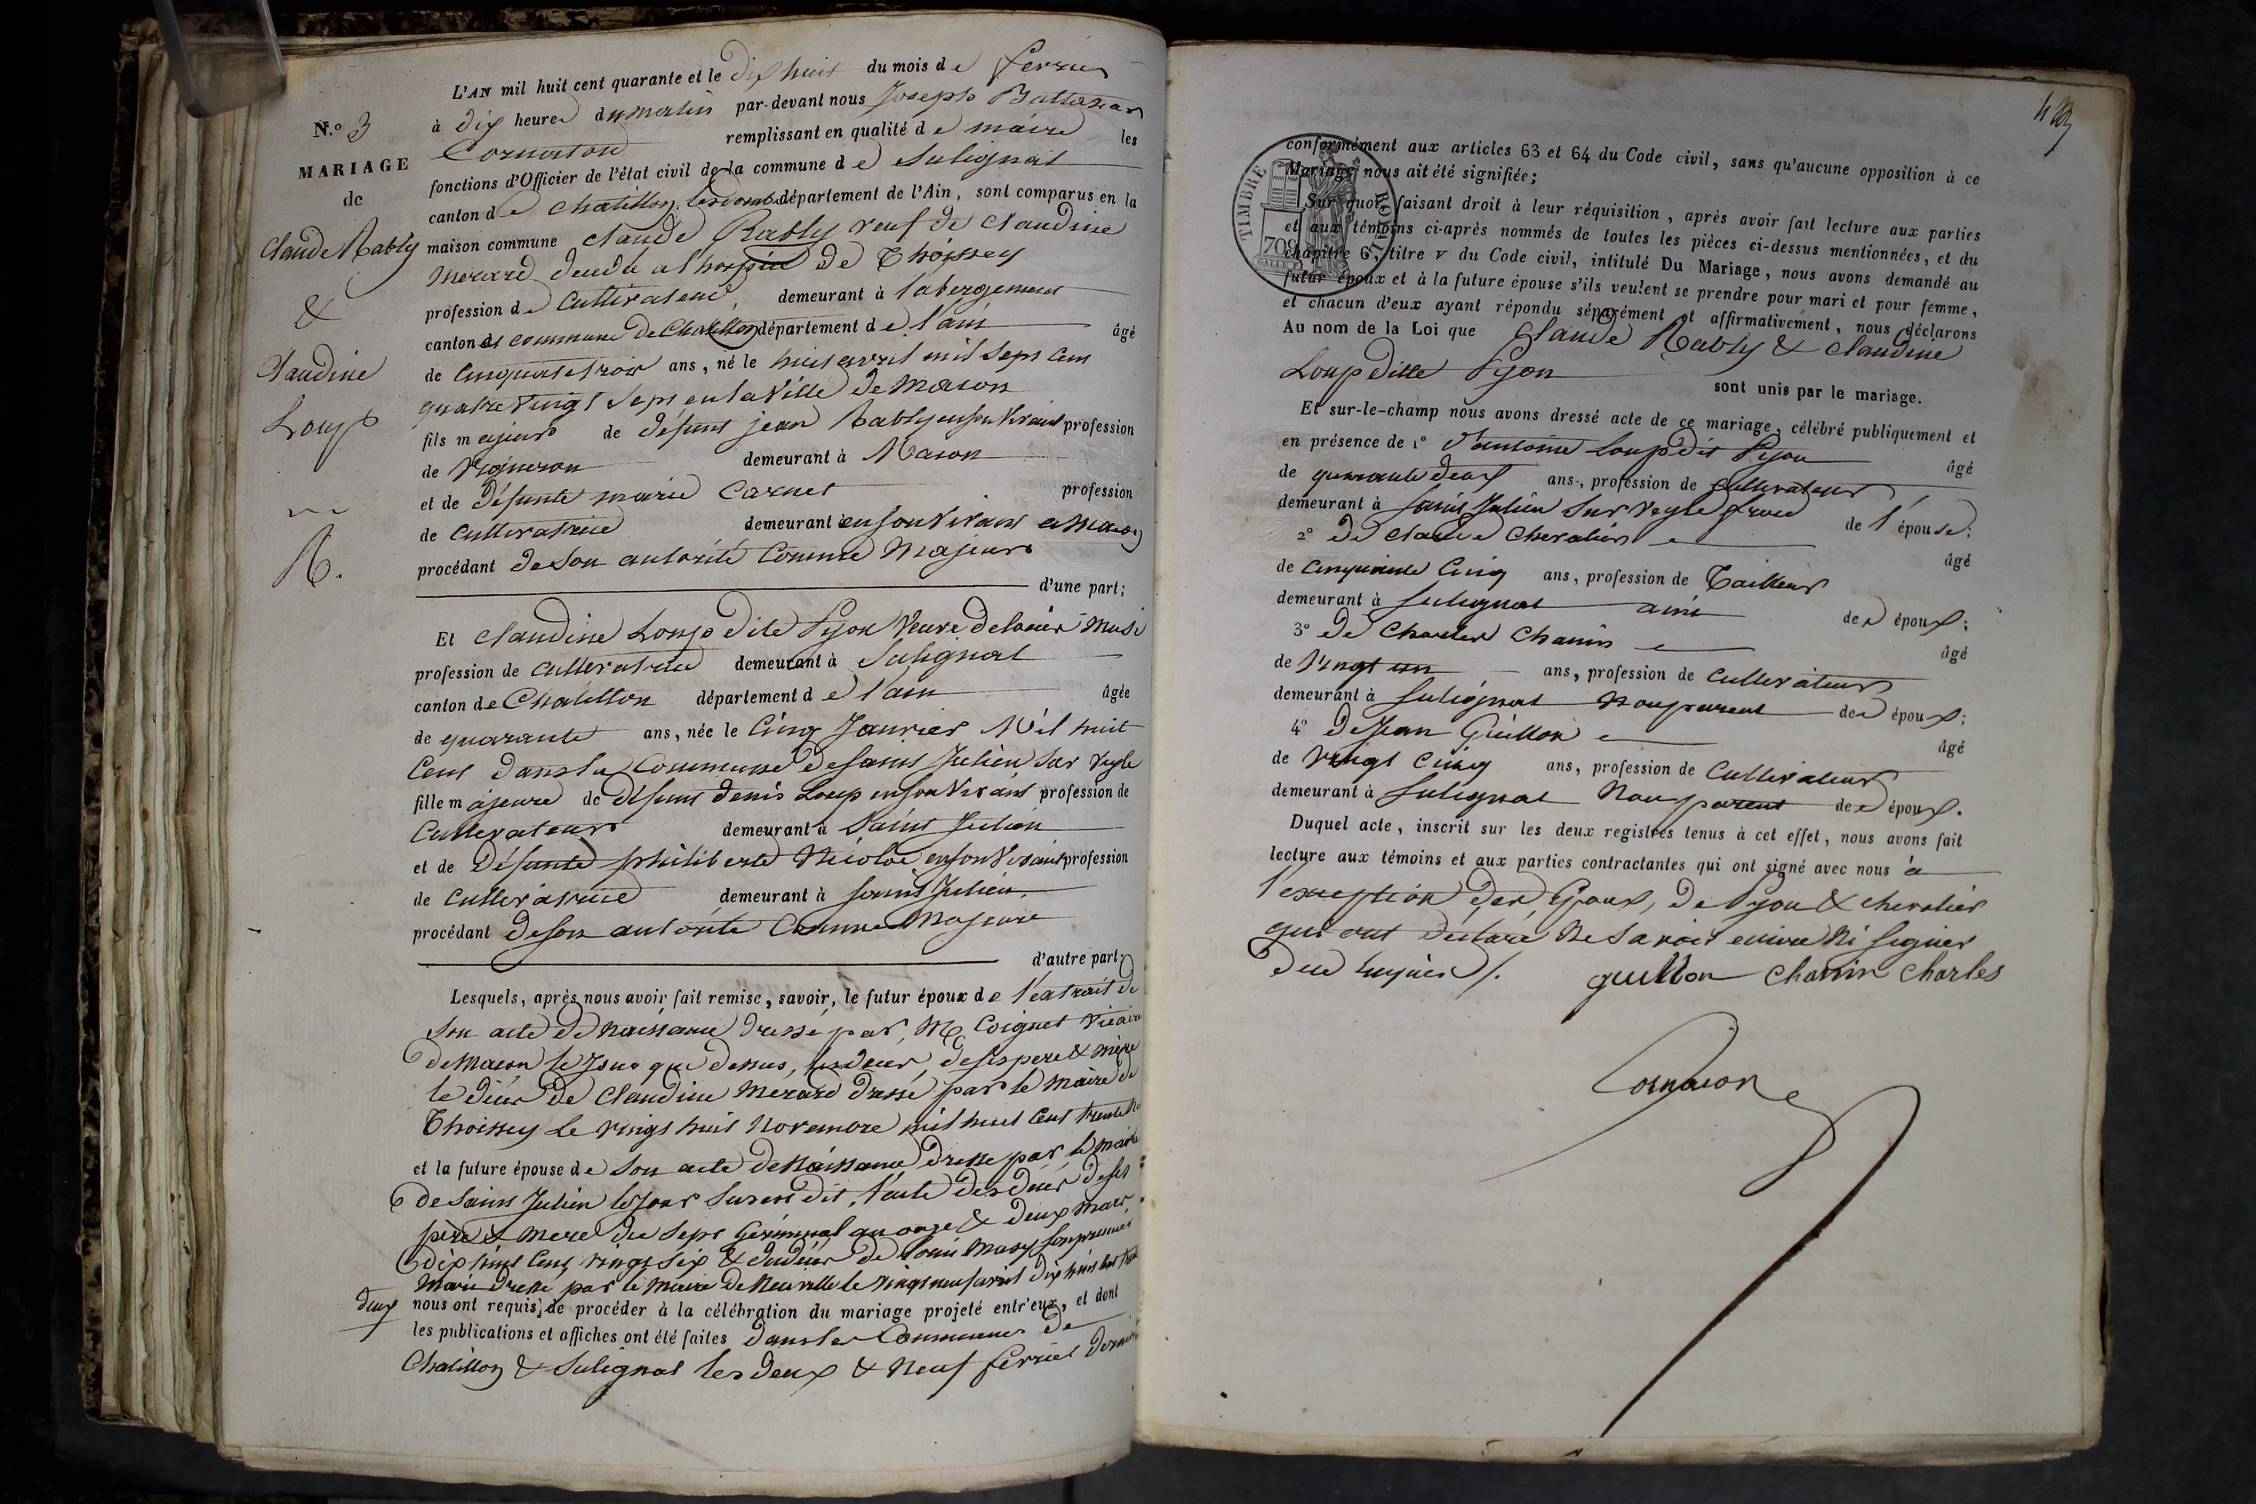 N.o 3
MARIAGE
de
Claude Rably
&
Claudine
Loup
R.
L'AN mil huit cent quarante et le dix huit du mois de fevrier
à dix heures du matin par-devant nous Joseph Baltazar
Cornaton remplissant en qualité de maire les
fonctions d'Officier de l'état civil de la commune de Sulignat
canton de Chatillon les dombes département de l'Ain, sont comparus en la
maison commune Claude Rably veuf de Claudine
Merard décédé a l'hospice de Thoissey
profession de Cultivateur, demeurant à l'abergement
canton et commune de Chatillon département de l'ain âgé
de cinquante trois ans, né le huit avril mil sept cent
quatre vingt sept en la Ville de Macon
fils majeur de défunt jean Rably en son Vivant profession
de Vigneron demeurant à Macon
et de défunte marie Carnet profession
de Cultivatrice demeurant en son Vivant a Macon
procédant de son autorité Comme Majeur
d'une part;
Et Claudine Loup dite Pyon Veuve de Louis Musi
profession de Cultivatrice demeurant à Sulignat
canton de Chatillon département de l'ain âgée
de quarante ans, née le Cinq Janvier Mil huit
Cent dans la Commune de Saint Julien sur Veyle
fille majeure de défunt denis Loup en son Vivant profession de
Cultivateur demeurant à Saint Julien
et de défunte philiberte Nicolas en son Vivant profession
de Cultivatrice demeurant à Saint Julien
procédant de son autorité Comme Majeure
d'autre part;
Lesquels, après nous avoir fait remise, savoir, le futur époux de l'extrait de
son acte de Naissance dressé par M Coignet Vicaire
de Macon le Jour que dessus, les décès de ses pere & mère
le décès de Claudine Merard dressé par le Maire de
Thoissey le vingt huit Novembre mil huit Cent trente
et la future épouse de son acte de Naissance dressé par le Maire
de Saint Julien le Jour susdit, l'acte des décès de ses
père & mere du sept Germinal an onze & deux Mars
dix huit Cent vingt six & du décès de Louis Musy son premier
Mari dressé par le Maire de Neuville le vingt neuf avril dix huit Cent trente
deux nous ont requis de procéder à la célébration du mariage projeté entr'eux, et dont
les publications et affiches ont été faites dans les Communes de
Chatillon & Sulignat les deux & Neuf fevrier dernier
TIMBRE ROYAL
709
conformément aux articles 63 et 64 du Code civil, sans qu'aucune opposition à ce
Mariage nous ait été signifiée;
Sur quoi, faisant droit à leur réquisition, après avoir fait lecture aux parties
et aux témoins ci-après nommés de toutes les pièces ci-dessus mentionnées, et du
chapitre 6, titre v du Code civil, intitulé Du Mariage, nous avons demandé au
futur époux et à la future épouse s'ils veulent se prendre pour mari et pour femme,
et chacun d'eux ayant répondu séparément et affirmativement, nous déclarons
Au nom de la Loi que Claude Rably & Claudine
Loup ditte Pyon sont unis par le mariage.
Et sur-le-champ nous avons dressé acte de ce mariage, célébré publiquement et
en présence de 1° d'antoine Loup dit Pyon âgé
de quarante deux ans, profession de Cultivateur
demeurant à Saint Julien sur Veyle frere de l'épouse;
2° de Claude Chevalier âgé
de Cinquante Cinq ans, profession de Tailleur
demeurant à Sulignat ami des époux;
3° de Charles Chanin âgé
de Vingt un ans, profession de Cultivateur
demeurant à Sulignat Non parent des époux;
4° de Jean Guillon âgé
de Vingt Cinq ans, profession de Cultivateur
demeurant à Sulignat Non parent des époux.
Duquel acte, inscrit sur les deux registres tenus à cet effet, nous avons fait
lecture aux témoins et aux parties contractantes qui ont signé avec nous à
l'exception des époux, de Pyon & Chevalier
qui ont déclaré Ne Savoir ecrire Ni Signer
de ce enquis /. guillon Chanin Charles
Cornaton